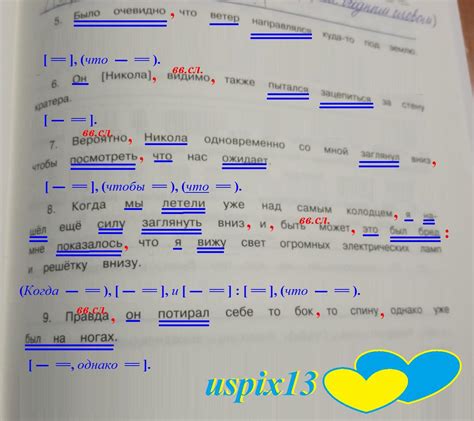 5. Было очевидно, что ветер направлялся куда-то под землю.
[═], (что — ═).
вв.сл.
6. Он [Никола], видимо, также пытался зацепиться за стену
кратера.
[— ═].
вв.сл.
7. Вероятно, Никола одновременно со мной заглянул вниз,
чтобы посмотреть, что нас ожидает
[— ═], (чтобы ═), (что ═).
8. Когда мы летели уже над самым колодцем, я на-
вв.сл.
шёл ещё силу заглянуть вниз, и, быть может, это был бред:
мне показалось, что я вижу свет огромных электрических ламп
и решётку внизу.
(Когда — ═), [— ═], и [— ═] : [═], (что — ═).
вв.сл.
9. Правда, он потирал себе то бок, то спину, однако уже
был на ногах.
[— ═, однако ═].
uspix13